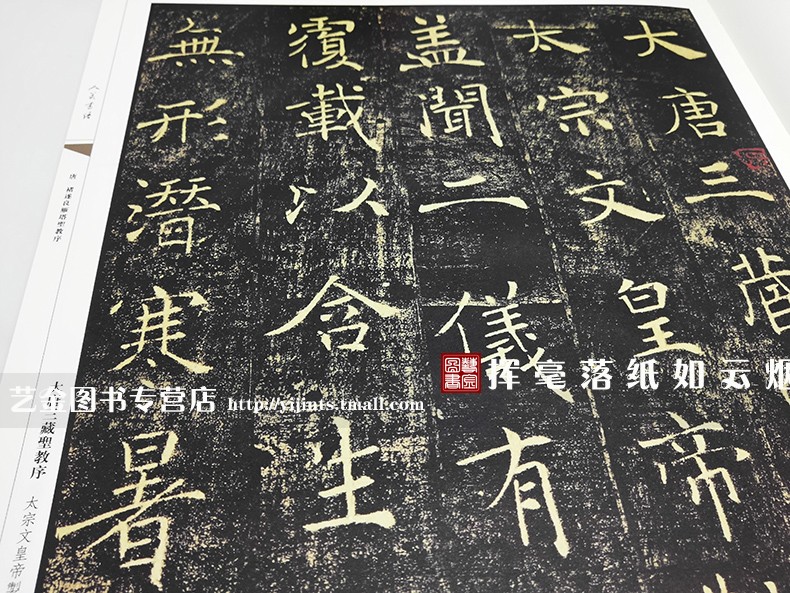 大唐三藏
太宗文皇帝
盖聞二儀有
覆載以含生
無形潛寒暑
唐 褚遂良雁塔聖教序
大唐三藏聖教序 太宗文皇帝製
挥毫落纸如云烟
艺金图书专营店 http://yijints.tmall.com